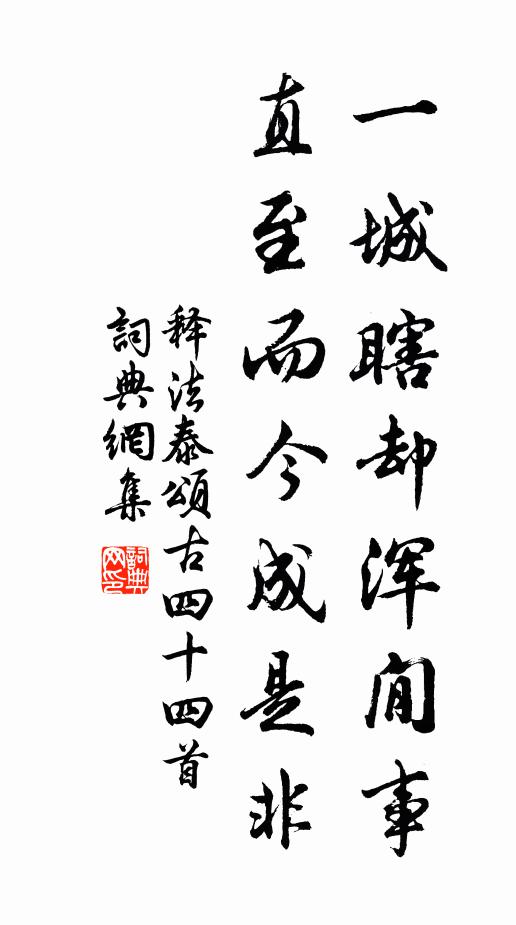 一城瞎却浑闲事
直至而今成是非
释法泰頌古四十四首
詞典網集
詞典网印